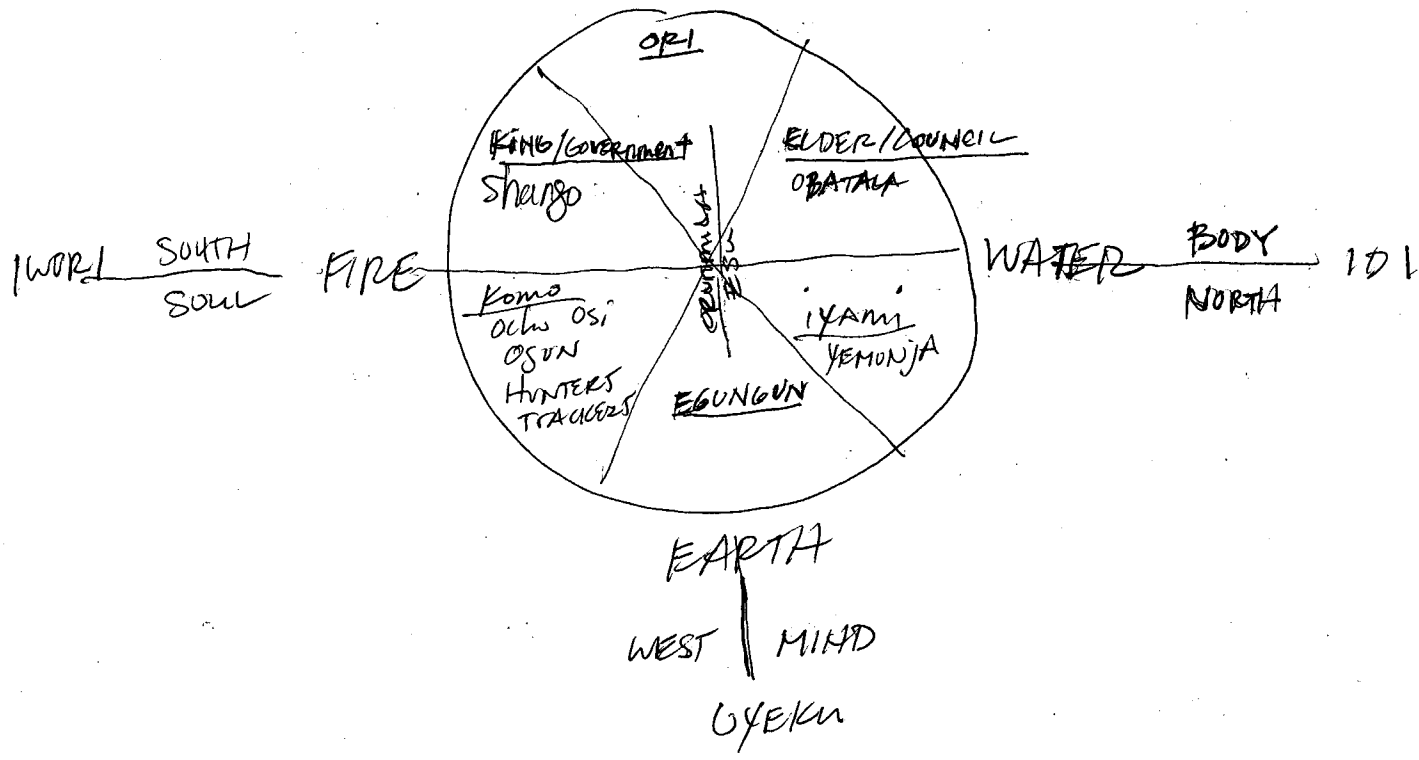 ORI
KING/GOVERNMENT
Shango
ELDER/COUNCIL
OBATALA
ORUNMILA
ESU
IWORI
SOUTH
SOUL
FIRE
WATER
BODY
NORTH
IDI
KOMO
Ocho OSi
OSUN
HUNTERS
TRACKERS
iYAMi
YEMONJA
EGUNGUN
EARTH
WEST
MIND
OYEKU